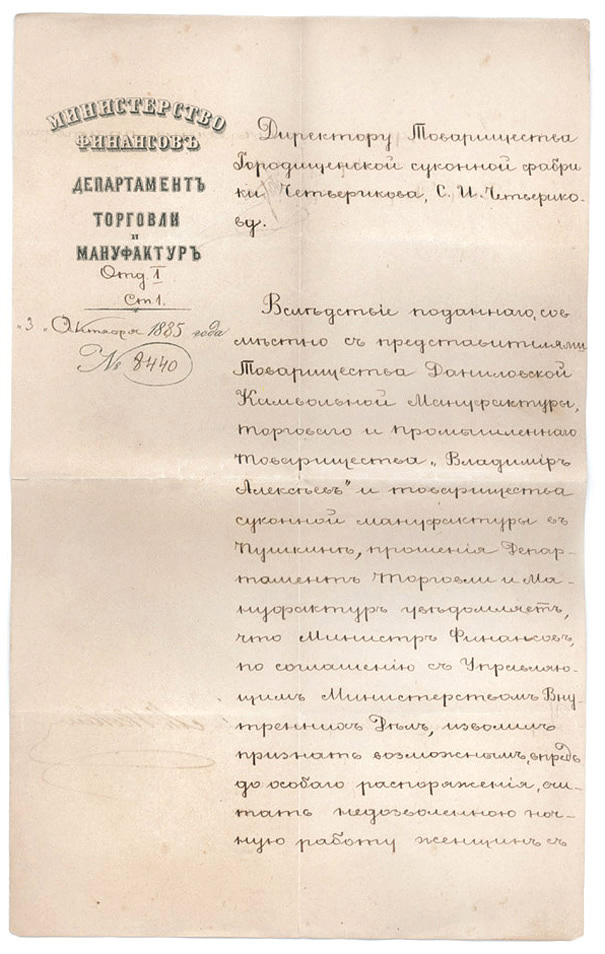 МИНИСТЕРСТВО
ФИНАНСОВЪ
ДЕПАРТАМЕНТЪ
ТОРГОВЛИ
И
МАНУФАКТУРЪ
Отд. I
Ст 1.
„3 „ Октября 1885 года
№ 8440
Директору Товарищества
Городищенской суконной фабри
ки Четверикова, С. И. Четверико-
ву.
Вслѣдствіе поданнаго, сов
мѣстно съ представителями
Товарищества Даниловской
Камвольной Мануфактуры,
торговаго и промышленнаго
товарищества „Владимiръ
Алексѣевъ" и товарищества
суконной мануфактуры въ
Пушкинѣ, прошенія Депар-
таментъ Торговли и Ма-
нуфактуръ увѣдомляетъ,
что Министръ Финансовъ,
по соглашенію съ Управляю-
щимъ Министерствомъ Вну-
треннихъ Дѣлъ, изволилъ
признать возможнымъ, впредь
до особаго распоряженія, счи-
тать недозволенною ноч-
ную работу женщинъ съ